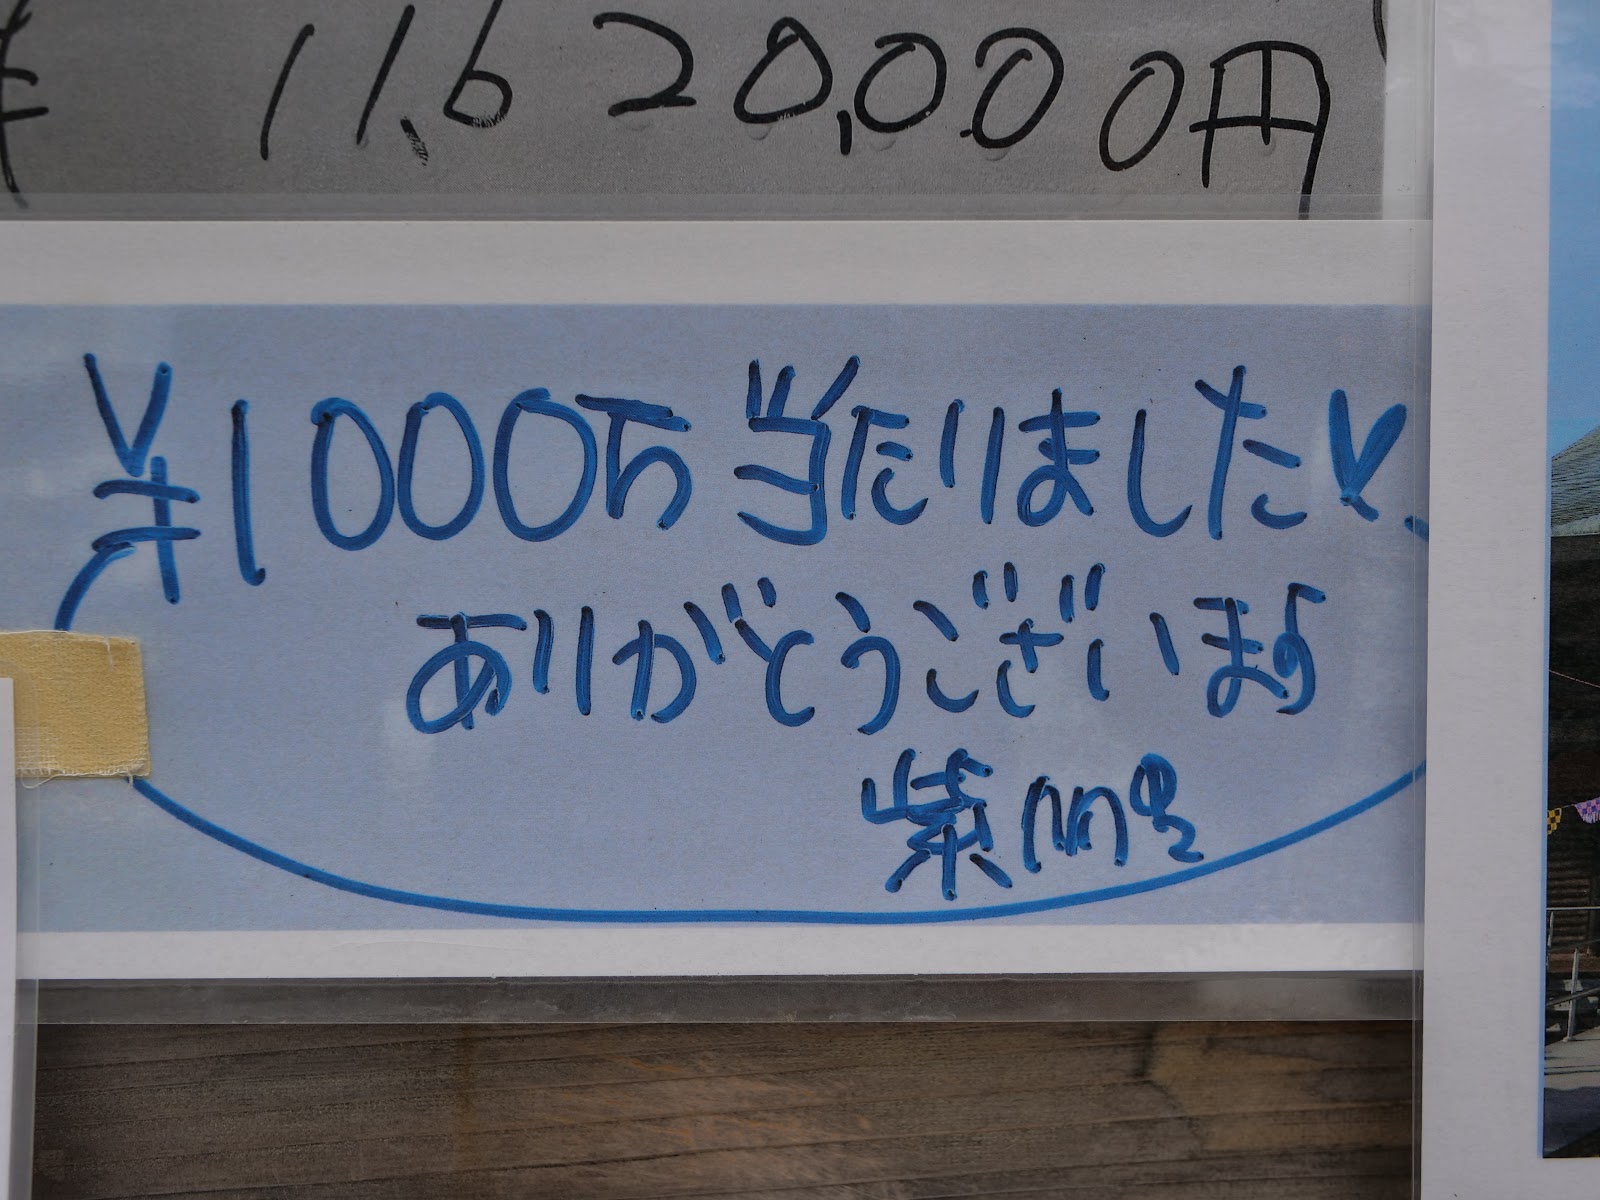 ¥ 11,620,000円
¥1000万当たりました♥
ありがとうございます
紫